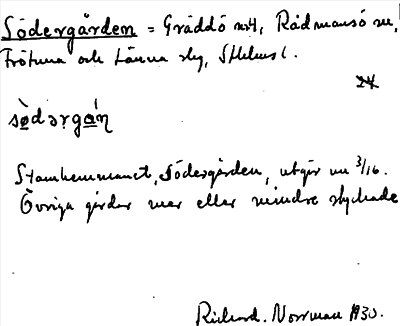 Södergården = Gräddö nr 4, Rådmansö sn,
Frötuna och Länna sky, Sthlms l.
24
sø̀dərgạń
Stamhemmanet, Södergården, utgör nu 3/16.
Övriga gårdar mer eller mindre styckade
Richard. Norrman 1930.